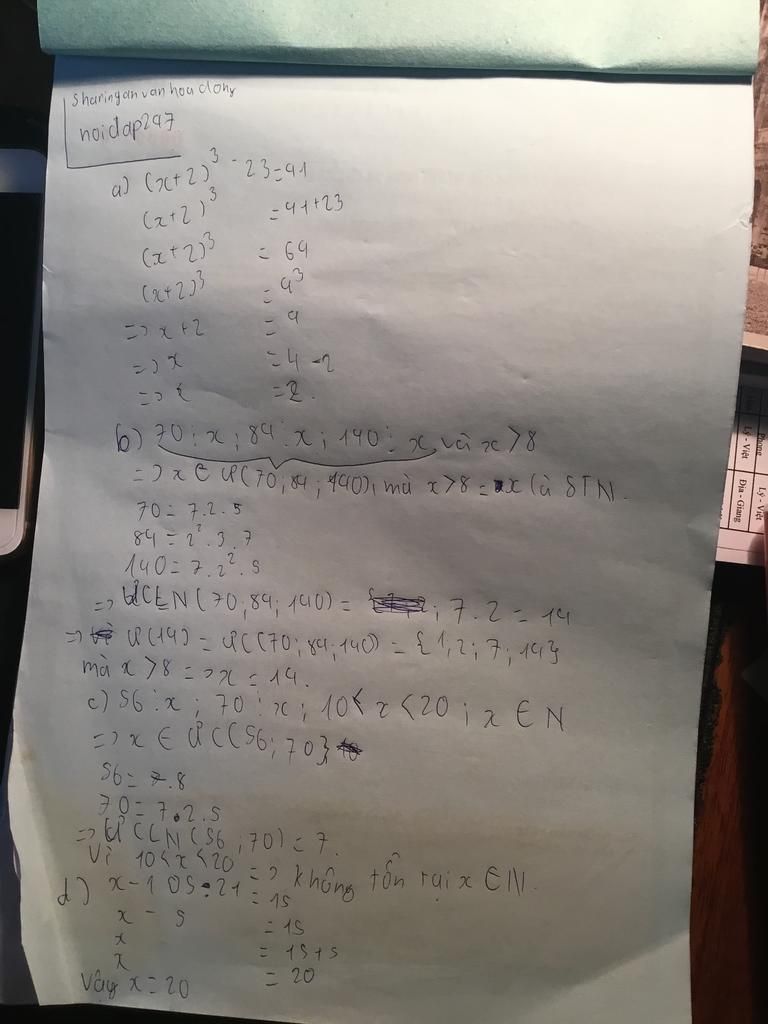 sharingan van hoa dong
noidap247
a) (x+2)³ - 23 = 41
(x+2)³ = 41+23
(x+2)³ = 64
(x+2)³ = 4³
=> x+2 = 4
=> x = 4-2
=> x = 2.
b) 70 ⋮ x ; 84 ⋮ x ; 140 ⋮ x và x > 8
=> x ∈ ƯC(70; 84; 140), mà x > 8 = x là STN.
70 = 7.2.5
84 = 2².3.7
140 = 7.2².5
=> ƯCLN(70; 84; 140) = ; 7.2 = 14
=> Ư(14) = ƯC(70; 84; 140) = {1; 2; 7; 14}
mà x > 8 => x = 14.
c) 56 ⋮ x ; 70 ⋮ x ; 10 < x < 20 ; x ∈ N
=> x ∈ ƯC(56; 70)
56 = 7.8
70 = 7.2.5
=> ƯCLN(56; 70) = 7.
Vì 10 < x < 20 => không tồn tại x ∈ N.
d) x - 105 : 21 = 15
x - 5 = 15
x = 15+5
x = 20
Vậy x = 20
Phong
Lý - Việt
Lý - Việt
Địa - Giang